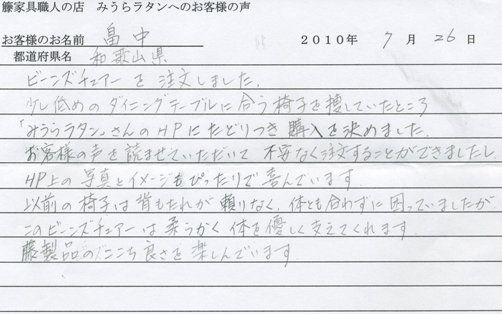 籐家具職人の店 みうらラタンへのお客様の声
お客様のお名前 畠中 2010年 7月 26日
都道府県名 和歌山県
ビーンズチェアーを注文しました。
少し低めのダイニングテーブルに合う椅子を捜していたところ
「みうらラタン」さんのHPにたどりつき購入を決めました。
お客様の声を読ませていただいて不安なく注文することができましたし
HP上の写真とイメージもぴったりで喜んでいます。
以前の椅子は背もたれが頼りなく、体とも合わずに困っていましたが
このビーンズチェアーは柔らかく体を優しく支えてくれます。
藤製品の心ここち良さを楽しんでいます。